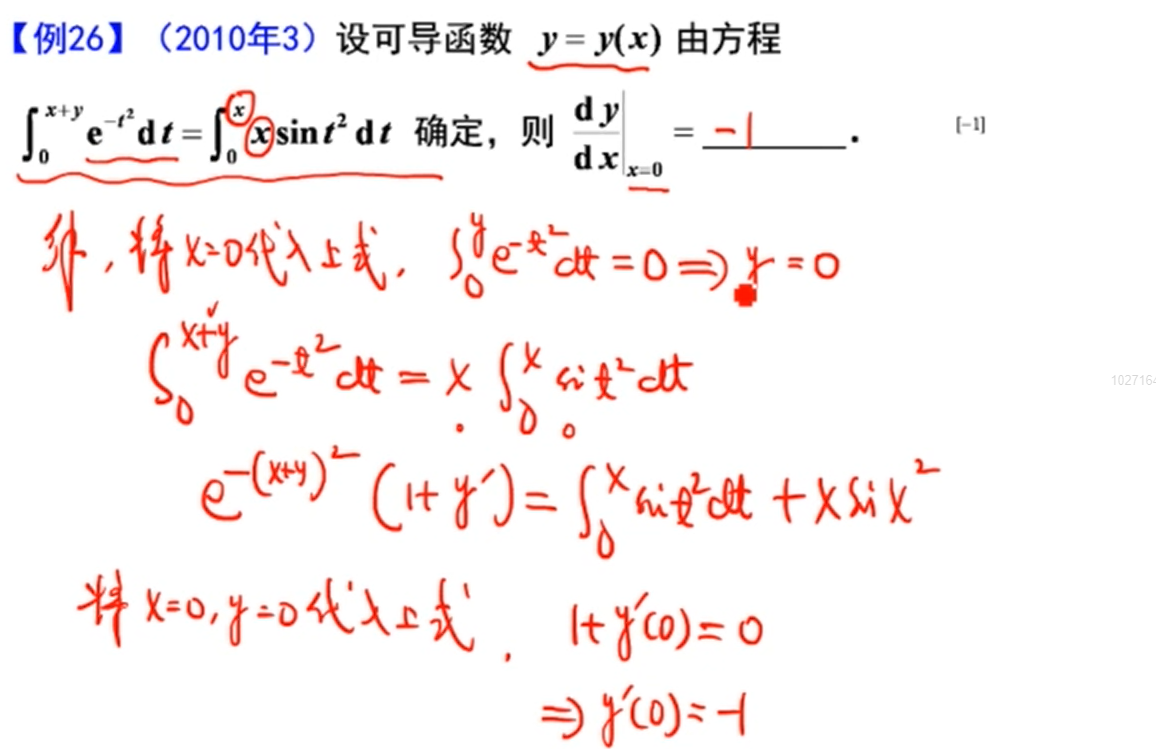 【例26】（2010年3）设可导函数 y = y(x) 由方程
∫₀^{x+y} e^{-t²} dt = ∫₀^{x} x sin t² dt 确定，则 dy/dx|_{x=0} = -1 . [-1]
解，将x=0代入上式，∫₀^{y} e^{-t²} dt = 0 ⇒ y = 0
∫₀^{x+y} e^{-t²} dt = x ∫₀^{x} sin t² dt
1027164
e^{-(x+y)²} (1+y′) = ∫₀^{x} sin t² dt + x sin x²
将x=0, y=0代入上式， 1+y′(0) = 0
⇒ y′(0) = -1